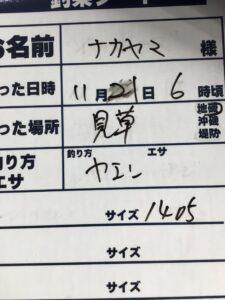 お名前 ナカヤマ 様
った日時 11月21日 6時頃
った場所 見草 地磯 沖磯 堤防
釣り方 エサ 釣り方 ヤエン エサ
サイズ 1405
サイズ
サイズ